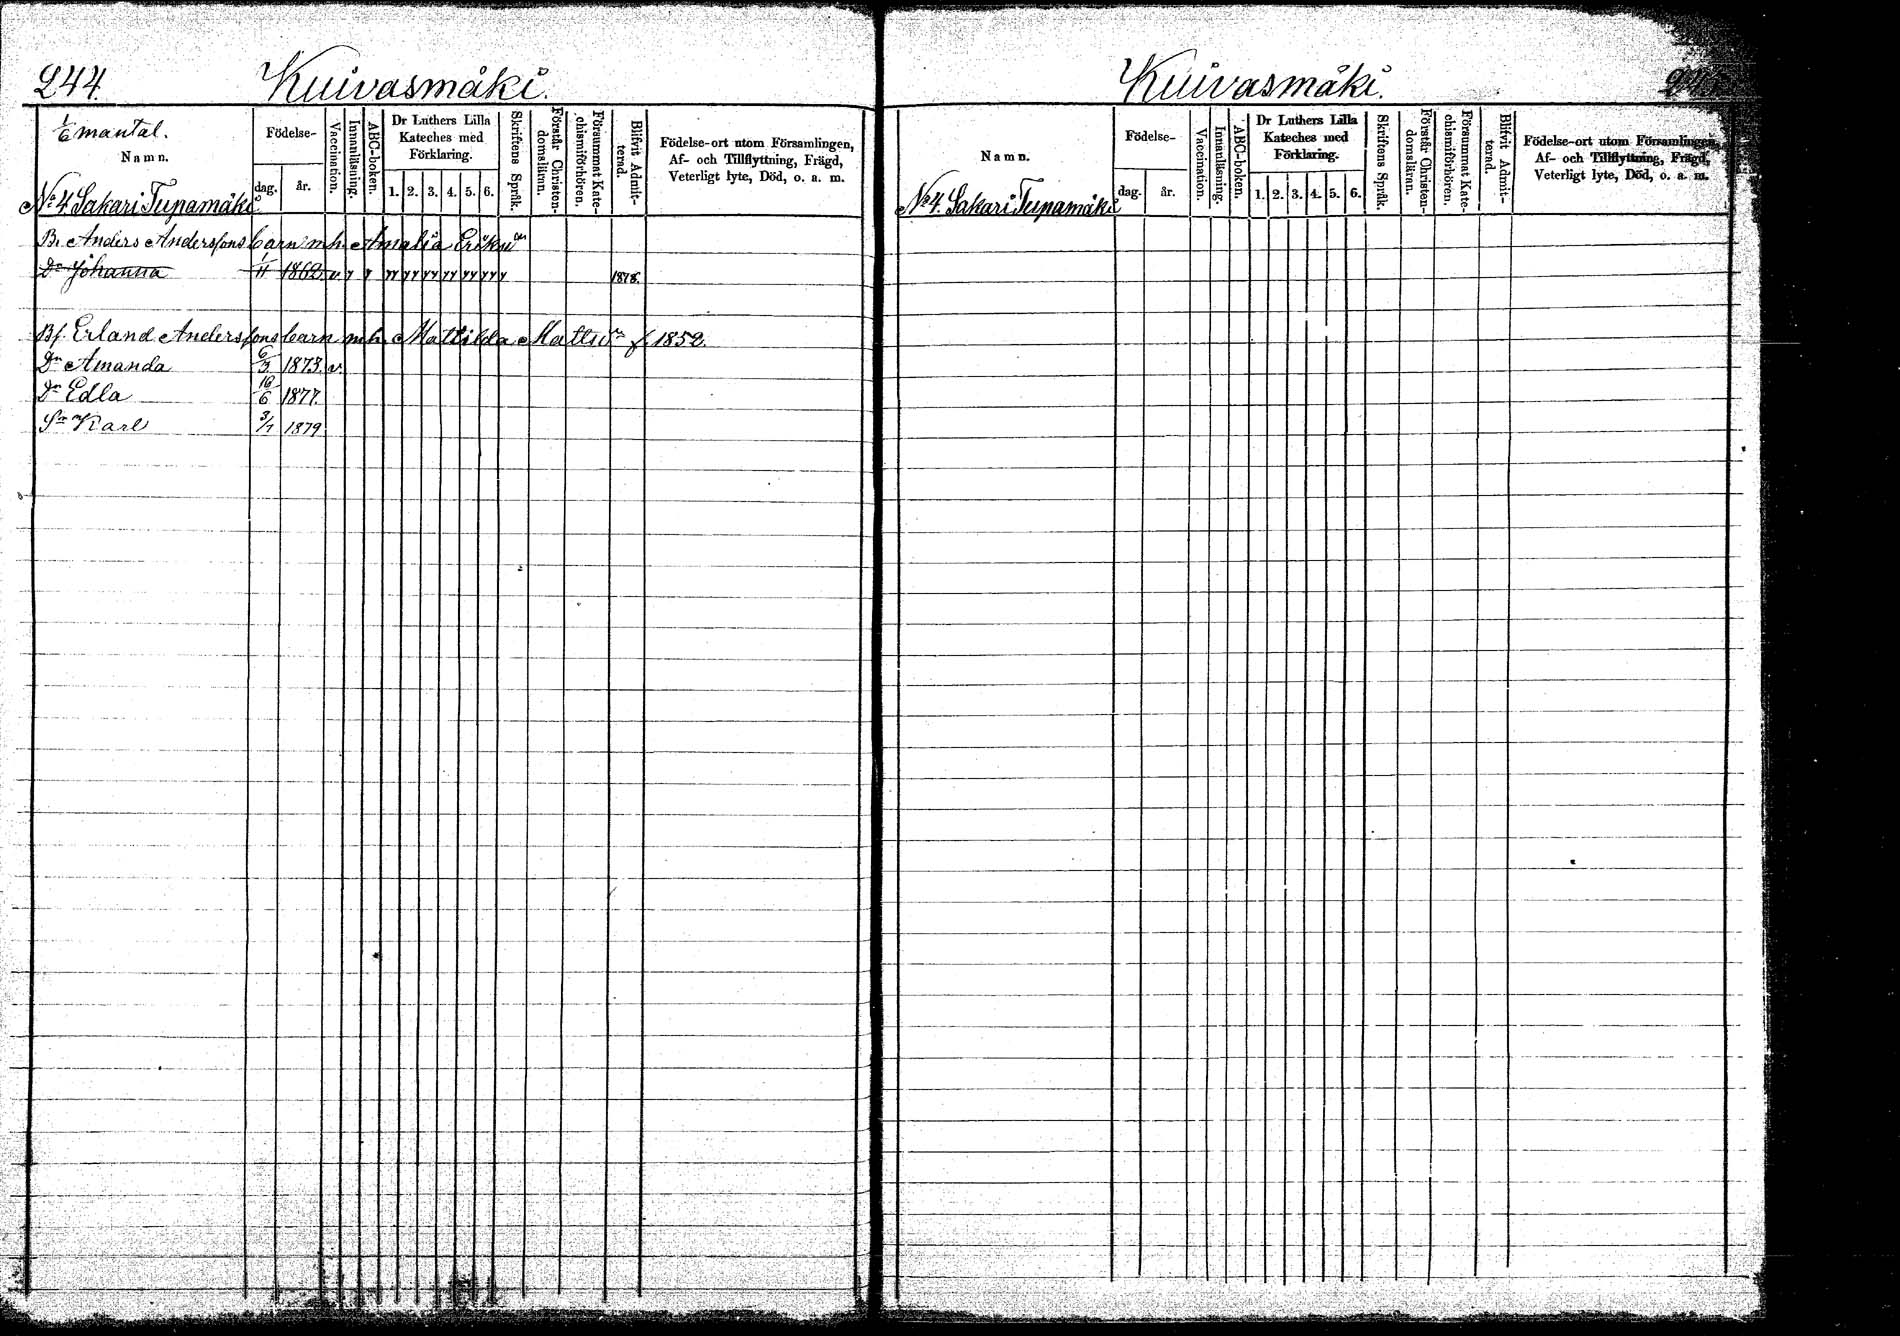 244.
Kuivasmäki.
1/6 mantal.
Namn.
Födelse-
dag.
år.
Vaccination.
Innanläsning.
ABC-boken.
Dr Luthers Lilla
Kateches med
Förklaring.
1. 2. 3. 4. 5. 6.
Skriftens Språk.
Förstår Christen-
domsläran.
Försummat Kate-
chismiförhören.
Blifvit Admit-
terad.
Födelse-ort utom Församlingen,
Af- och Tillflyttning, Frägd,
Veterligt lyte, Död, o. a. m.
No 4. Sakari Tupamäki
Anders Anderssons barn m h. Amalia
Dr Johanna 1/11 1862 v y y yy yy yy yy yy yy y 1878.
Erland Anderssons barn m h. Mathilda Mattsdr f. 1852.
Dr Amanda 6/3 1873. v.
Dr Edla 16/6 1877.
Sn Karl 3/7 1879
Kuivasmäki.
Namn.
Födelse-
dag.
år.
Vaccination.
Innanläsning.
ABC-boken.
Dr Luthers Lilla
Kateches med
Förklaring.
1. 2. 3. 4. 5. 6.
Skriftens Språk.
Förstår Christen-
domsläran.
Försummat Kate-
chismiförhören.
Blifvit Admit-
terad.
Födelse-ort utom Församlingen,
Af- och Tillflyttning, Frägd,
Veterligt lyte, Död, o. a. m.
No 4. Sakari Tupamäki